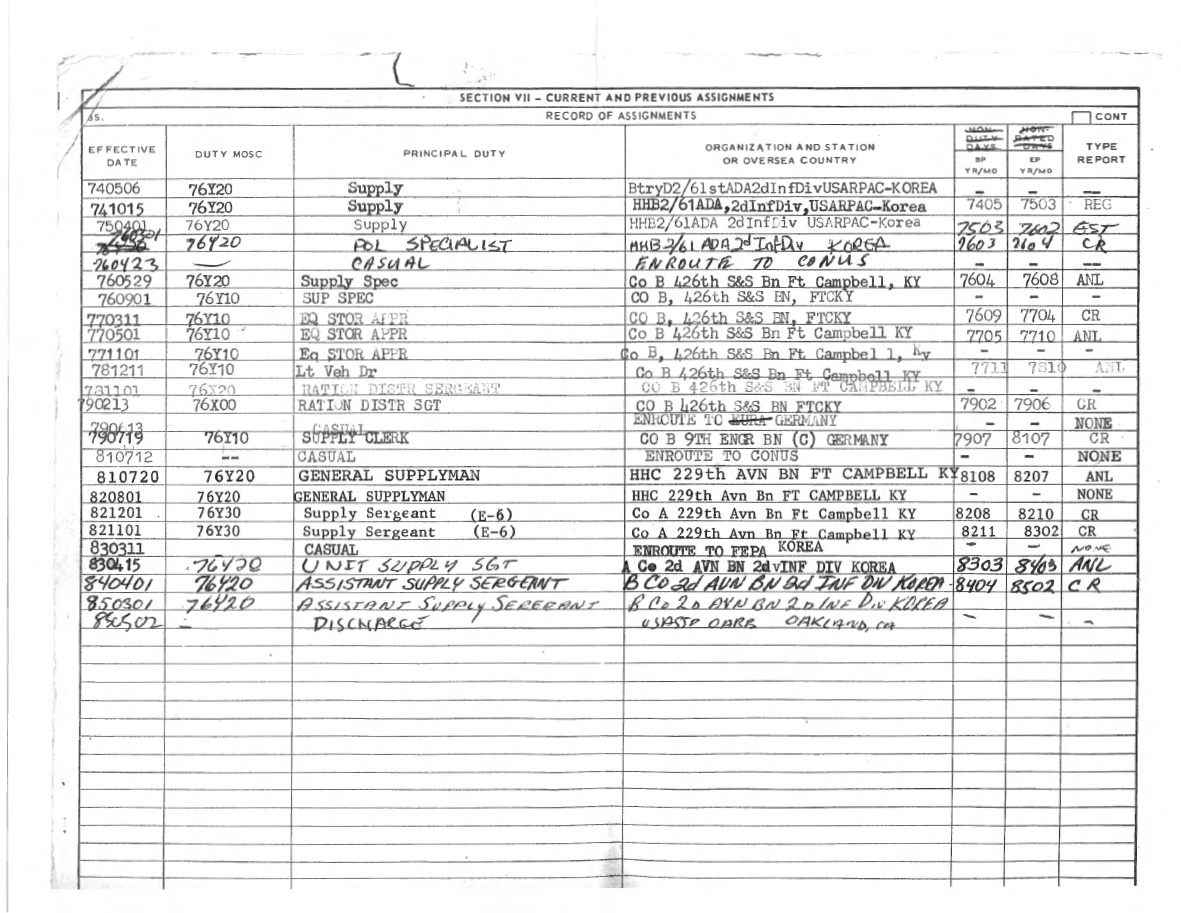 SECTION VII – CURRENT AND PREVIOUS ASSIGNMENTS
35. RECORD OF ASSIGNMENTS CONT
EFFECTIVE DATE DUTY MOSC PRINCIPAL DUTY ORGANIZATION AND STATION OR OVERSEA COUNTRY NON-DUTY DAYS BP YR/MO NON-RATED DAYS EP YR/MO TYPE REPORT
740506 76Y20 Supply BtryD2/61stADA2dInfDivUSARPAC-KOREA – – --
741015 76Y20 Supply HHB2/61ADA,2dInfDiv,USARPAC-Korea 7405 7503 REG
750401 76Y20 Supply HHB2/61ADA 2dInfDiv USARPAC-Korea 7503 7602 EST
760301 76Y20 POL SPECIALIST HHB2/61 ADA 2d InfDiv KOREA 7603 7604 CR
760423 — CASUAL ENROUTE TO CONUS – – --
760529 76Y20 Supply Spec Co B 426th S&S Bn Ft Campbell, KY 7604 7608 ANL
760901 76Y10 SUP SPEC CO B, 426th S&S BN, FTCKY – – –
770311 76Y10 EQ STOR APPR CO B, 426th S&S BN, FTCKY 7609 7704 CR
770501 76Y10 EQ STOR APPR Co B 426th S&S Bn Ft Campbell KY 7705 7710 ANL
771101 76Y10 Eq STOR APPR Co B, 426th S&S Bn Ft Campbel l, Ky – – –
781211 76Y10 Lt Veh Dr Co B 426th S&S Bn Ft Campbell KY 7711 7810 ANL
781101 76X20 RATION DISTR SERGEANT CO B 426th S&S BN FT CAMPBELL KY – – –
790213 76X00 RATION DISTR SGT CO B 426th S&S BN FTCKY 7902 7906 CR
790613 CASUAL ENROUTE TO EURA GERMANY – – NONE
790719 76Y10 SUPPLY CLERK CO B 9TH ENGR BN (C) GERMANY 7907 8107 CR
810712 -- CASUAL ENROUTE TO CONUS – – NONE
810720 76Y20 GENERAL SUPPLYMAN HHC 229th AVN BN FT CAMPBELL KY 8108 8207 ANL
820801 76Y20 GENERAL SUPPLYMAN HHC 229th Avn Bn FT CAMPBELL KY – – NONE
821201 76Y30 Supply Sergeant (E-6) Co A 229th Avn Bn Ft Campbell KY 8208 8210 CR
821101 76Y30 Supply Sergeant (E-6) Co A 229th Avn Bn Ft Campbell KY 8211 8302 CR
830311 CASUAL ENROUTE TO FEPA KOREA – – NONE
830415 76Y20 UNIT SUPPLY SGT A Co 2d AVN BN 2dvINF DIV KOREA 8303 8403 ANL
840401 76Y20 ASSISTANT SUPPLY SERGEANT B CO 2d AVN BN 2d INF DIV KOREA 8404 8502 CR
850301 76Y20 ASSISTANT SUPPLY SERGEANT B CO 2D AVN BN 2D INF DIV KOREA
850502 – DISCHARGE OAKLAND, CA – – –